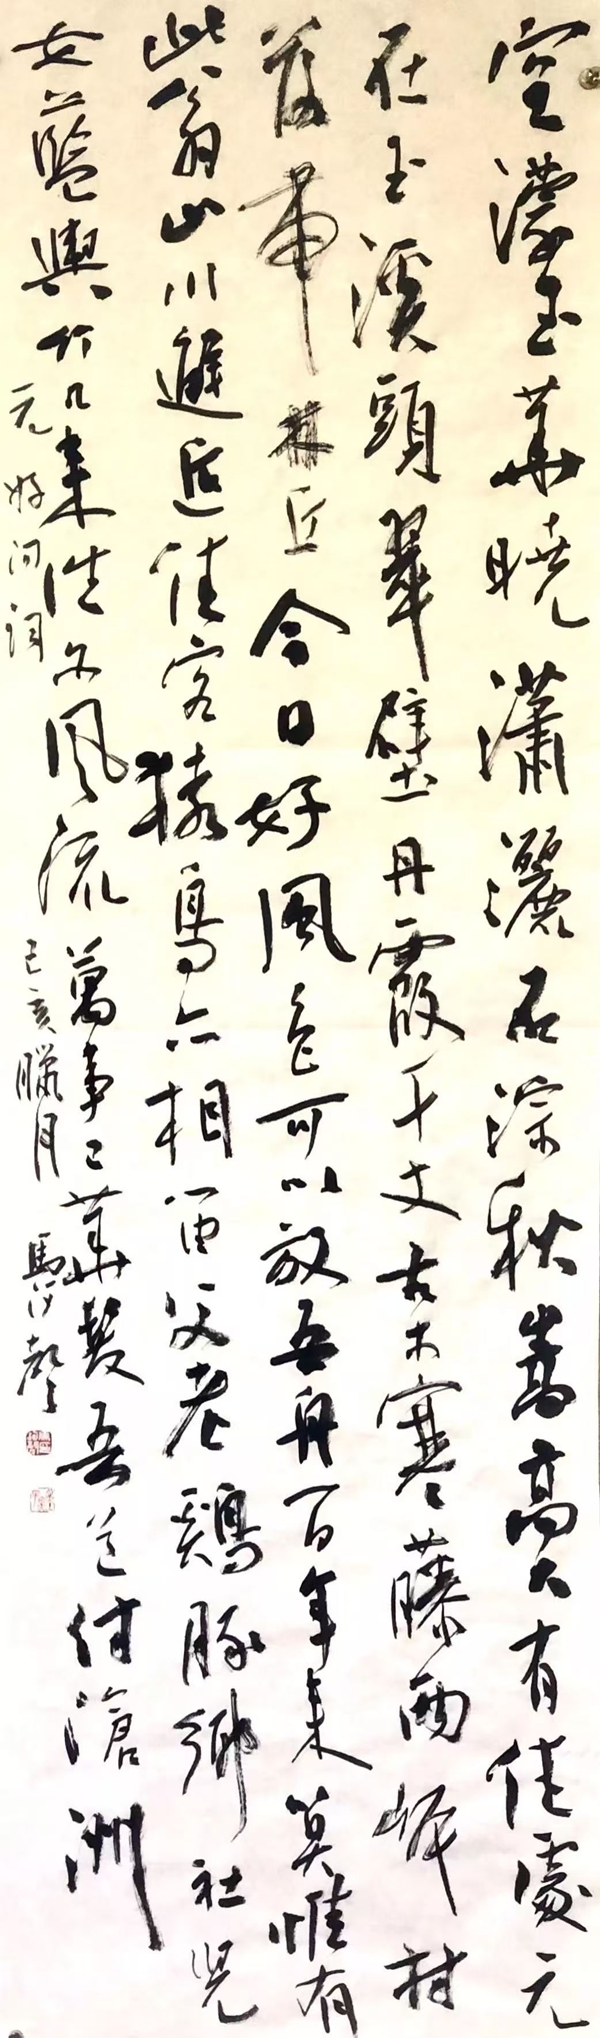 空濛玉華曉瀟灑石淙秋嵩高大有佳處元
在玉溪頭翠壁丹霞千丈古木寒藤兩岸村
落帶林丘今日好風色可以放吾舟百年來算惟有
此翁山川邂逅佳客猿鳥亦相留父老鷄豚鄉社児
女藍輿竹几來往亦風流萬事已華髮吾道付滄洲
元好问词 己亥臘月 馬